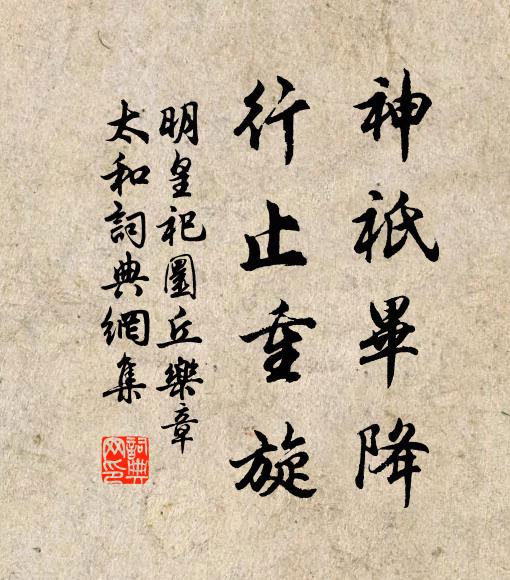 神祇畢降
行止重旋
明皇祀圜丘樂章
太和詞典網集
詞典网印